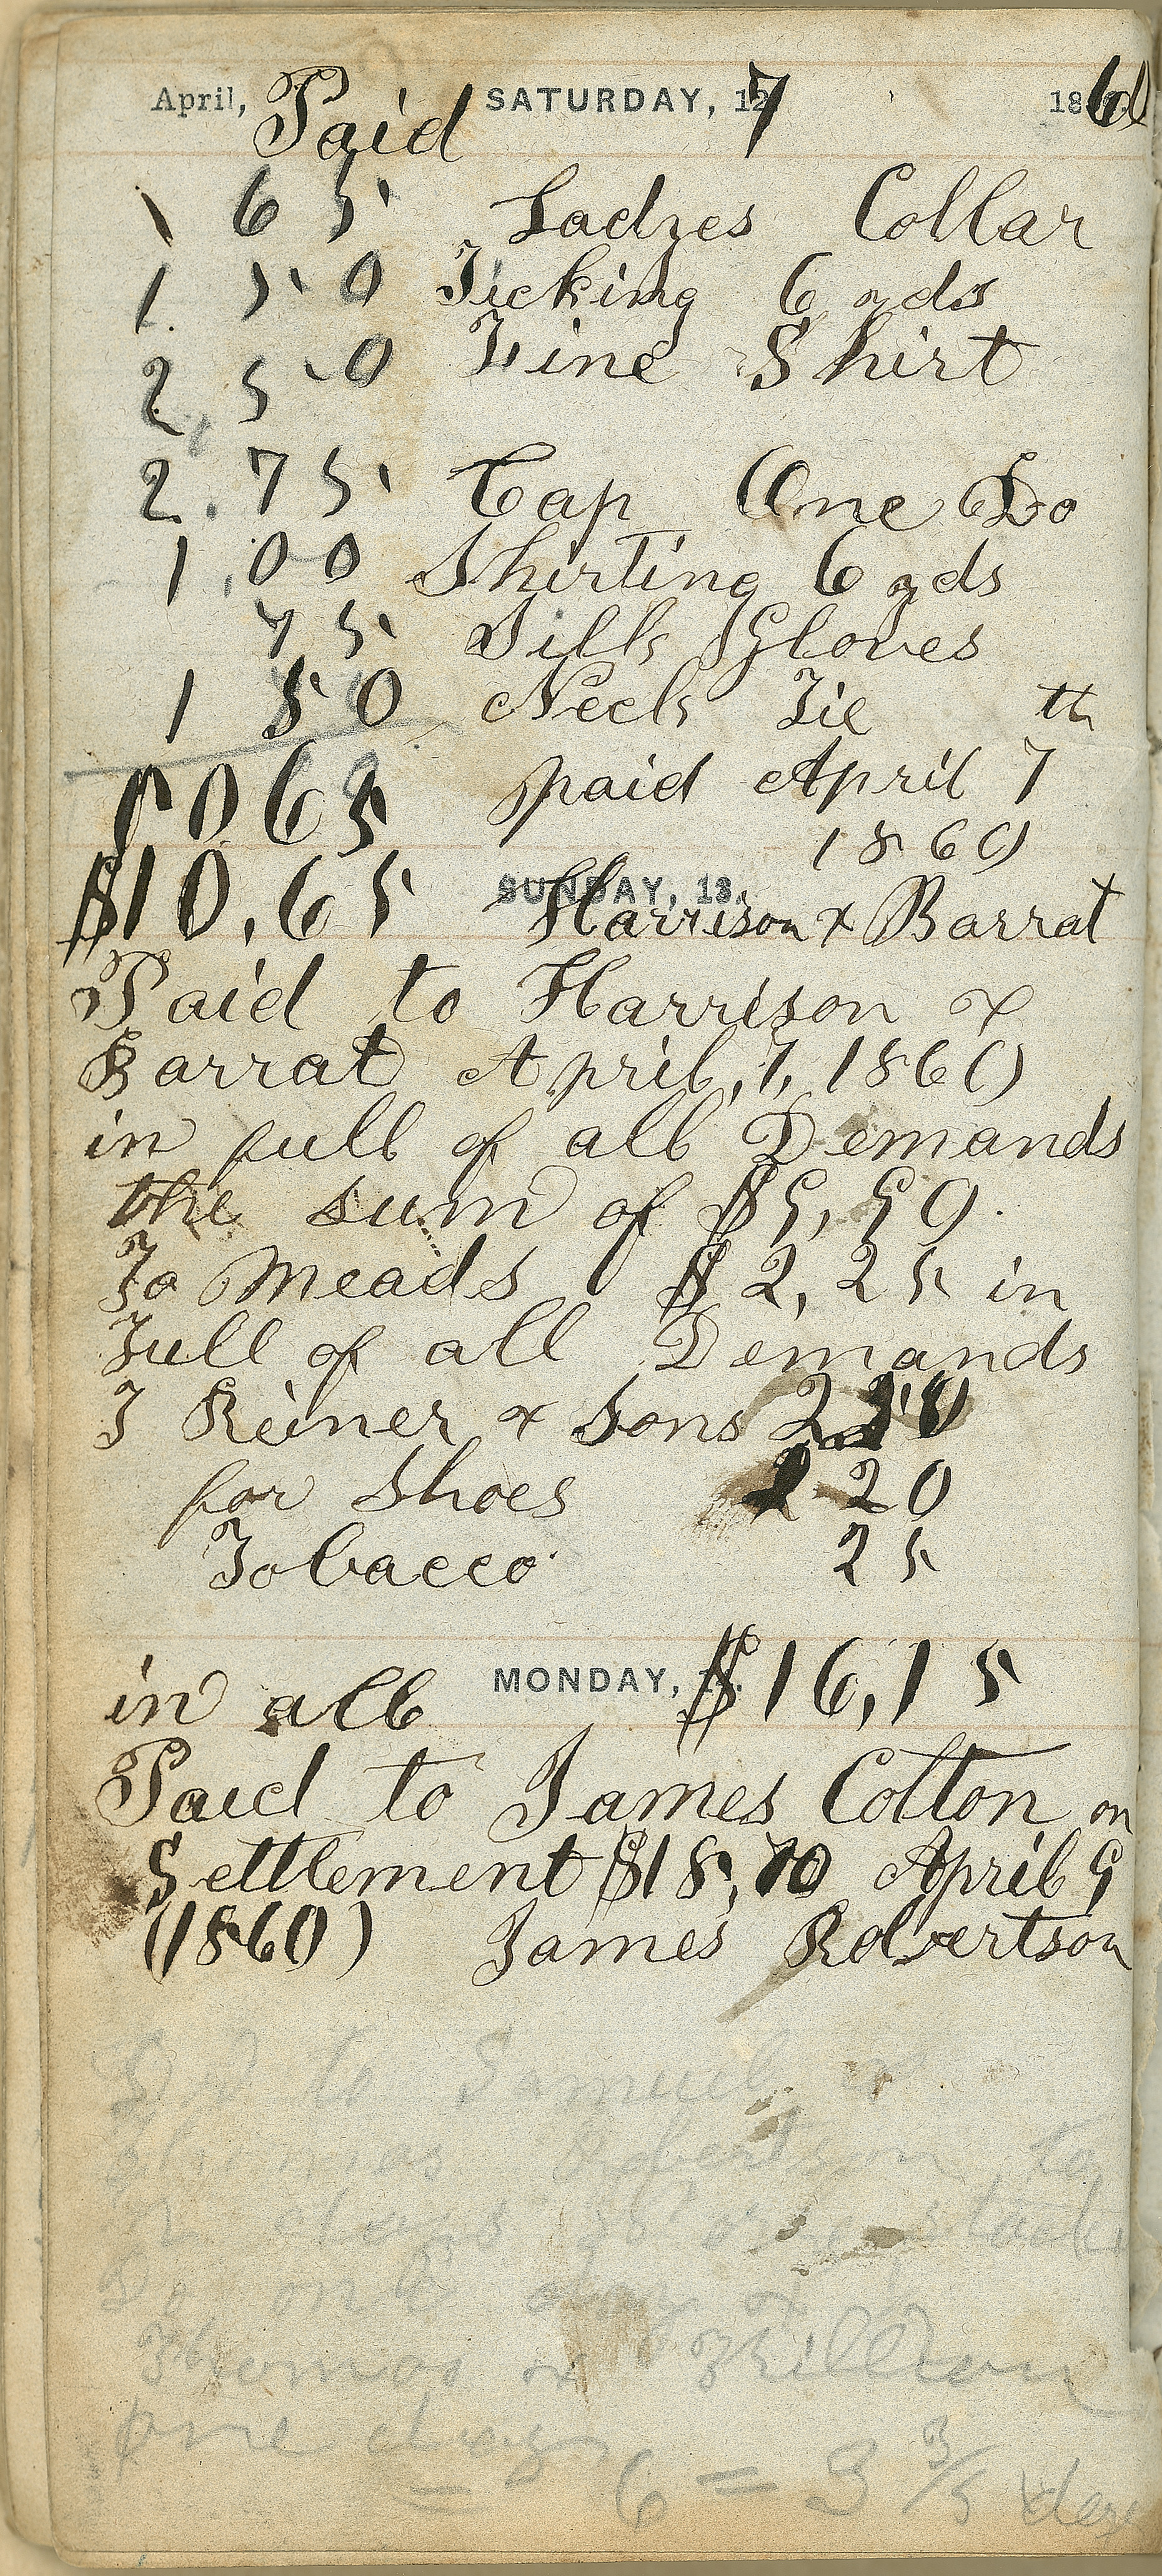 April, Paid SATURDAY, 12 7 1860
1 65 Ladies Collar
1. 50 Ticking 6 yds
2 50 Fine Shirt
2.75 Cap One Do
1,00 Shirting 6 yds
75 Silk Gloves
1 50 Neck Tie
1065 paid April 7th
1860
$10,65 SUNDAY, 13. Harrison & Barrat
Paid to Harrison &
Barrat April, 7, 1860
in full of all Demands
the sum of $9,90.
To Meads $2,25 in
Full of all Demands
& Sons
for Shoes 2 20
Tobacco 25
in all MONDAY, $16,15
Paid to James Colton on
Settlement $18,70 April 9
(1860) James Robertson
to Samuel &
Thomas Robertson to
days
one day &
Thomas &
one day
6 = 3 3/5 days